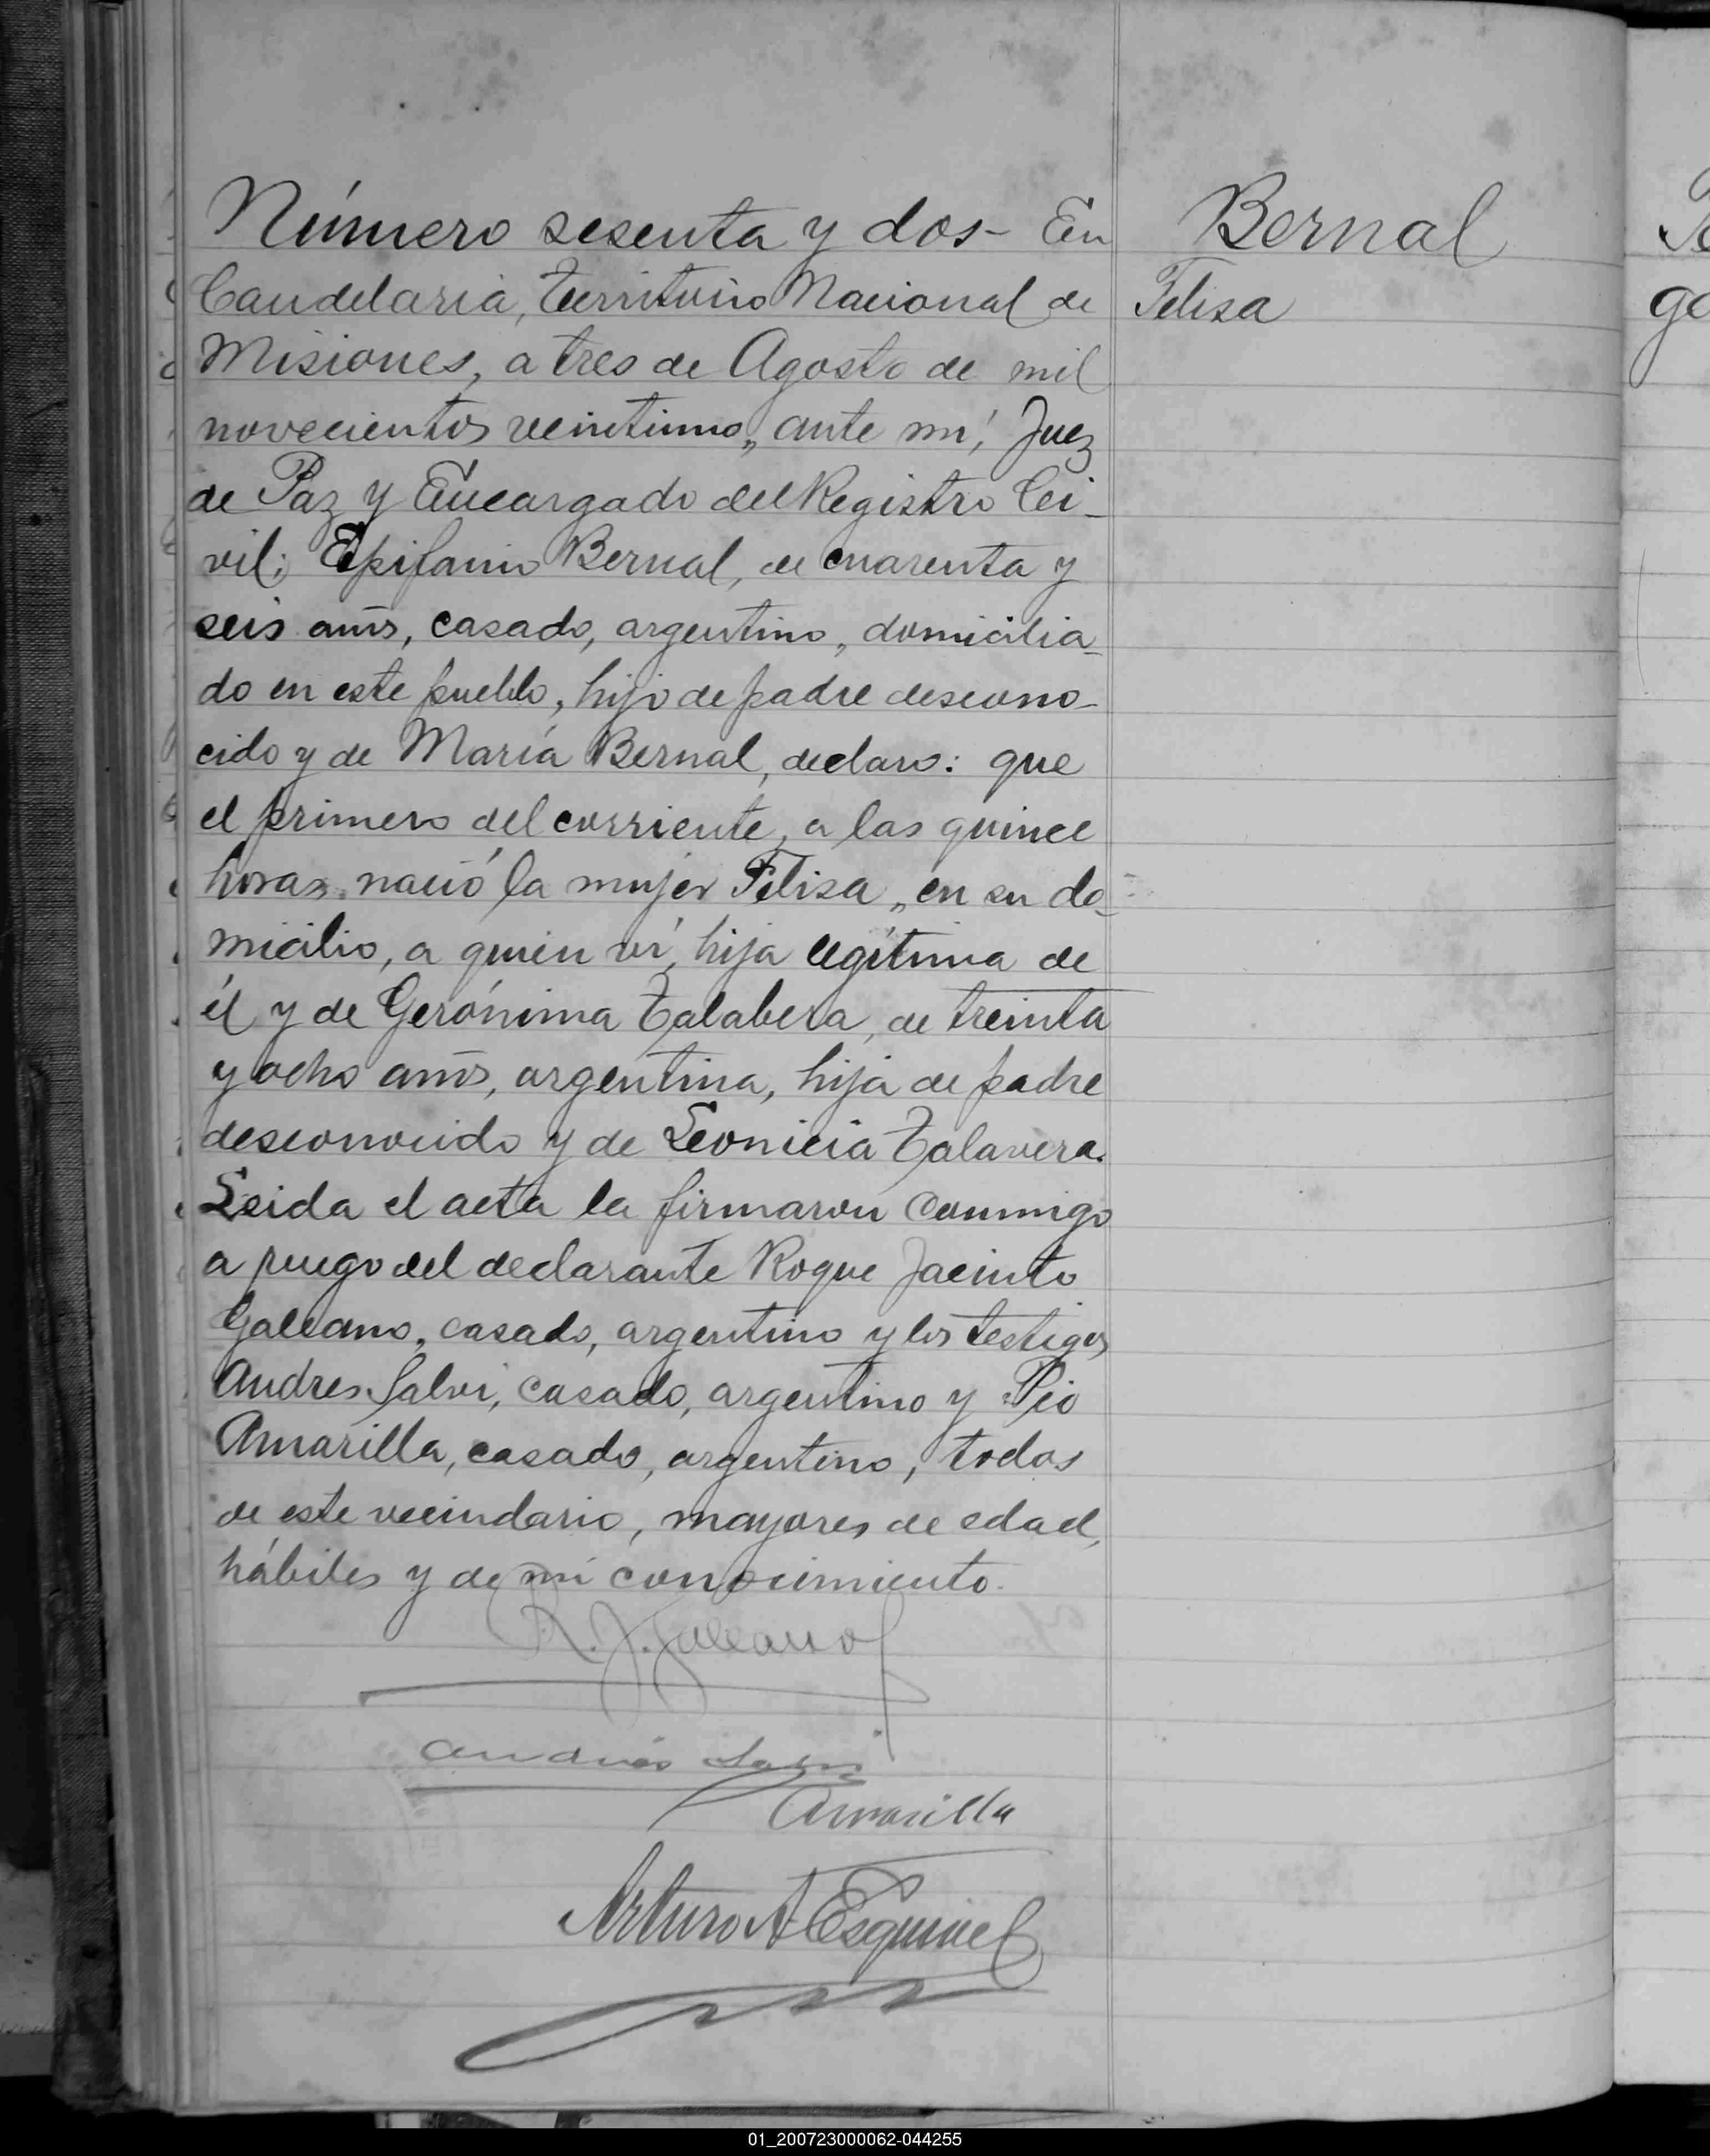 Número sesenta y dos- En
Candelaria, Territorio Nacional de
Misiones, a tres de Agosto de mil
novecientos veintiuno, ante mí, Juez
de Paz y Encargado del Registro Ci-
vil; Epifanio Bernal, de cuarenta y
seis años, casado, argentino, domicilia-
do en este pueblo, hijo de padre descono-
cido y de María Bernal, declaro: que
el primero del corriente, a las quince
horas nació la mujer Felisa, en su do-
micilio, a quien ví, hija legítima de
él y de Gerónima Talabera, de treinta
y ocho años, argentina, hija de padre
desconocido y de Leonicia Talavera.
Leida el acta la firmaron conmigo
a ruego del declarante Roque Jacinto
Galeano, casado, argentino y los testigos
Andres Salvi, casado, argentino y Pio
Amarilla, casado, argentino, todos
de este vecindario, mayores de edad,
hábiles y de mi conocimiento.
R. J. Galeano
Andrés Salvi
Amarilla
Arturo A Esquivel
Bernal
Felisa
01_200723000062-044255